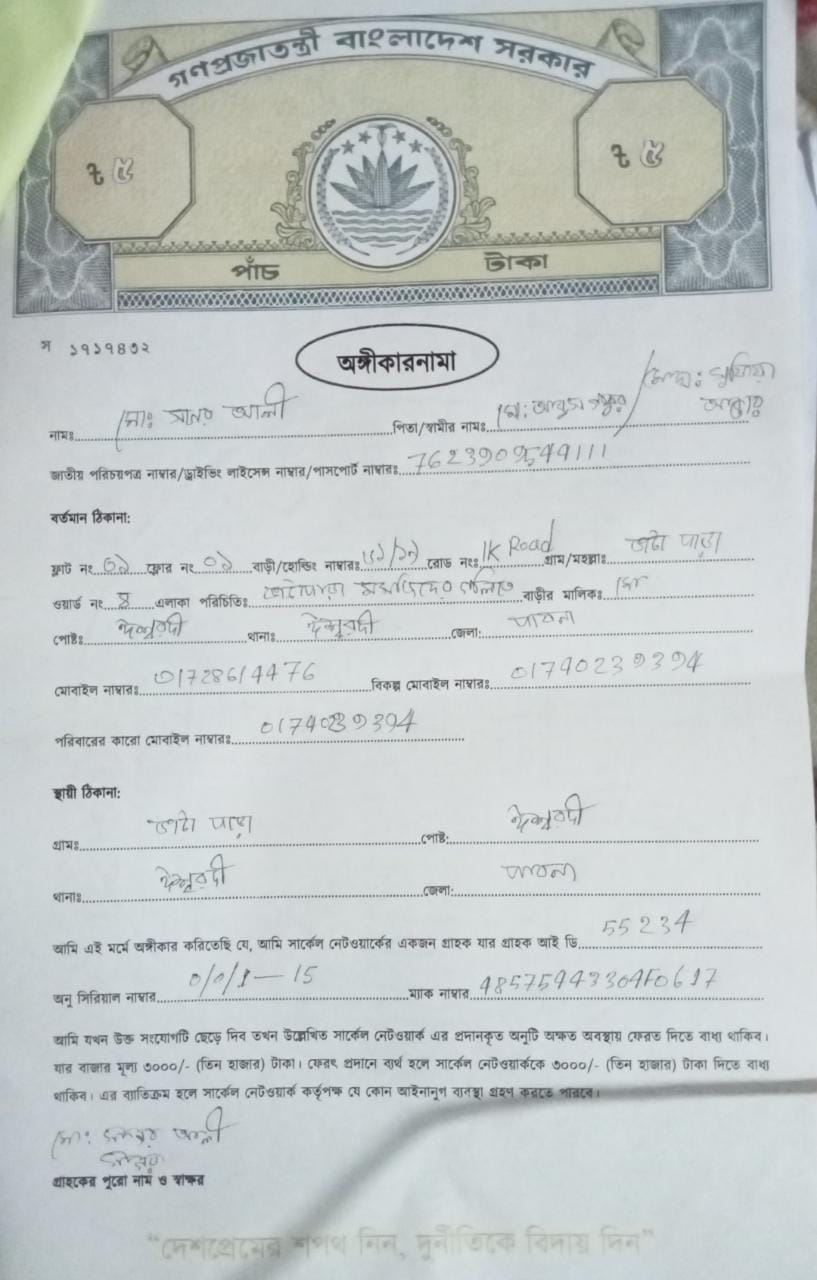 গণপ্রজাতন্ত্রী বাংলাদেশ সরকার
৳ ৫ ৳ ৫
পাঁচ টাকা
স ১৭১৭৪৩২
অঙ্গীকারনামা
নামঃ মোঃ আলী পিতা/স্বামীর নামঃ মোঃ আব্দুস / আক্তার
জাতীয় পরিচয়পত্র নাম্বার/ড্রাইভিং লাইসেন্স নাম্বার/পাসপোর্ট নাম্বারঃ
বর্তমান ঠিকানা:
ফ্লাট নং ফ্লোর নং ০১ বাড়ী/হোল্ডিং নাম্বারঃ রোড নংঃ IK Road গ্রাম/মহল্লাঃ পাড়া
ওয়ার্ড নং ৪ এলাকা পরিচিতিঃ মসজিদের গলিতে বাড়ীর মালিকঃ
পোষ্টঃ ঈশ্বরদী থানাঃ ঈশ্বরদী জেলা: পাবনা
মোবাইল নাম্বারঃ 01728614476 বিকল্প মোবাইল নাম্বারঃ 01740239394
পরিবারের কারো মোবাইল নাম্বারঃ 01740239394
স্থায়ী ঠিকানা:
গ্রামঃ পাড়া পোষ্ট: ঈশ্বরদী
থানাঃ ঈশ্বরদী জেলা: পাবনা
আমি এই মর্মে অঙ্গীকার করিতেছি যে, আমি সার্কেল নেটওয়ার্কের একজন গ্রাহক যার গ্রাহক আই ডি 55234
অনু সিরিয়াল নাম্বার 0/0/1-15 ম্যাক নাম্বার
আমি যখন উক্ত সংযোগটি ছেড়ে দিব তখন উল্লেখিত সার্কেল নেটওয়ার্ক এর প্রদানকৃত অনুটি অক্ষত অবস্থায় ফেরত দিতে বাধ্য থাকিব।
যার বাজার মূল্য ৩০০০/- (তিন হাজার) টাকা। ফেরৎ প্রদানে ব্যর্থ হলে সার্কেল নেটওয়ার্ককে ৩০০০/- (তিন হাজার) টাকা দিতে বাধ্য
থাকিব। এর ব্যতিক্রম হলে সার্কেল নেটওয়ার্ক কর্তৃপক্ষ যে কোন আইনানুগ ব্যবস্থা গ্রহণ করতে পারবে।
মোঃ আলী
গ্রাহকের পুরো নাম ও স্বাক্ষর
"দেশপ্রেমের শপথ নিন, দুর্নীতিকে বিদায় দিন"